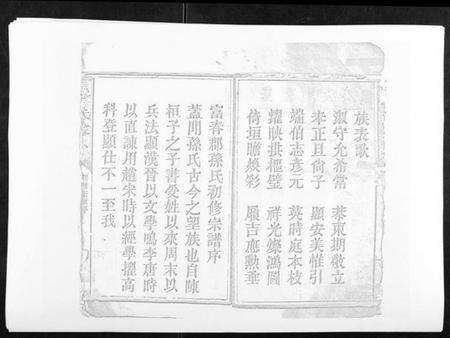 族表歌
淑守允希常
秉東期敬立
孝正且尚子
顯安美惟引
端伯志彥元
英時庭本枝
擢映拱樞璧
祥光燮鴻圖
倚垣瞻煥彩
履吉應勲華
富春郡孫氏初修宗譜序
蓋聞孫氏古今之望族也自陳
桓子之子書受姓以來周末以
兵法顯漢晉以文學鳴李唐時
以直諫用趙宋時以經學擢高
科登顯仕不一至我